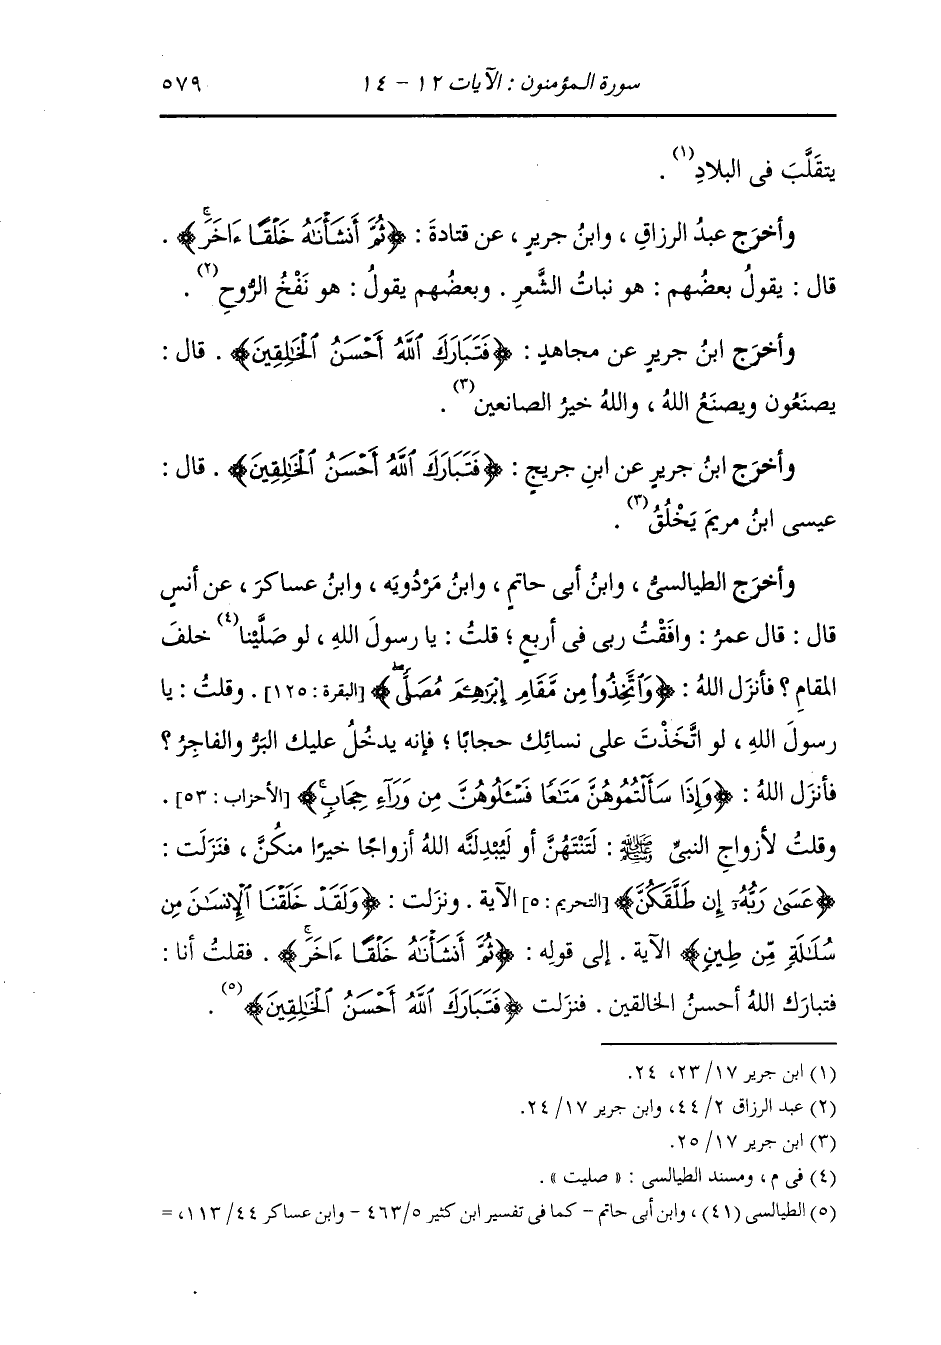 سورة المؤمنون : الآيات ١٢ - ١٤ ٥٧٩
يتقلَّبَ فى البلادِ(١) .
وأخرَج عبدُ الرزاقِ ، وابنُ جريرٍ ، عن قتادةَ : ﴿ثُمَّ أَنشَأْنَٰهُ خَلْقًا ءَاخَرَۚ﴾ .
قال : يقولُ بعضُهم : هو نباتُ الشَّعرِ . وبعضُهم يقولُ : هو نَفْخُ الرُّوحِ(٢) .
وأخرَج ابنُ جريرٍ عن مجاهدٍ : ﴿فَتَبَارَكَ ٱللَّهُ أَحْسَنُ ٱلْخَٰلِقِينَ﴾ . قال :
يصنَعُون ويصنَعُ اللهُ ، واللهُ خيرُ الصانعين(٣) .
وأخرَج ابنُ جريرٍ عن ابنِ جريجٍ : ﴿فَتَبَارَكَ ٱللَّهُ أَحْسَنُ ٱلْخَٰلِقِينَ﴾ . قال :
عيسى ابنُ مريمَ يَخْلُقُ(٣) .
وأخرَج الطيالسىُّ ، وابنُ أبى حاتمٍ ، وابنُ مَرْدُويَه ، وابنُ عساكرَ ، عن أنسٍ
قال : قال عمرُ : وافَقْتُ ربى فى أربعٍ ؛ قلتُ : يا رسولَ اللهِ ، لو صَلَّيْنا(٤) خلفَ
المقامِ ؟ فأنزَل اللهُ : ﴿وَٱتَّخِذُوا۟ مِن مَّقَامِ إِبْرَٰهِـۧمَ مُصَلًّىۖ﴾ [البقرة : ١٢٥] . وقلتُ : يا
رسولَ اللهِ ، لو اتَّخَذْتَ على نسائِك حجابًا ؛ فإنه يدخُلُ عليك البَرُّ والفاجِرُ ؟
فأنزَل اللهُ : ﴿وَإِذَا سَأَلْتُمُوهُنَّ مَتَٰعًا فَسْـَٔلُوهُنَّ مِن وَرَآءِ حِجَابٍۚ﴾ [الأحزاب : ٥٣] .
وقلتُ لأزواجِ النبىِّ ﷺ : لَتَنْتَهُنَّ أو لَيُبْدِلَنَّه اللهُ أزواجًا خيرًا منكُنَّ ، فنَزَلَت :
﴿عَسَىٰ رَبُّهُۥٓ إِن طَلَّقَكُنَّ﴾ [التحريم : ٥] الآية . ونزلت : ﴿وَلَقَدْ خَلَقْنَا ٱلْإِنسَٰنَ مِن
سُلَٰلَةٍ مِّن طِينٍ﴾ الآية . إلى قولِه : ﴿ثُمَّ أَنشَأْنَٰهُ خَلْقًا ءَاخَرَۚ﴾ . فقلتُ أنا :
فتبارَك اللهُ أحسنُ الخالقين . فنزَلت ﴿فَتَبَارَكَ ٱللَّهُ أَحْسَنُ ٱلْخَٰلِقِينَ﴾(٥) .
(١) ابن جرير ١٧/ ٢٣، ٢٤.
(٢) عبد الرزاق ٢/ ٤٤، وابن جرير ١٧/ ٢٤.
(٣) ابن جرير ١٧/ ٢٥.
(٤) فى م ، ومسند الطيالسى : « صليت » .
(٥) الطيالسى (٤١) ، وابن أبى حاتم - كما فى تفسير ابن كثير ٥/ ٤٦٣ - وابن عساكر ٤٤/ ١١٣، =